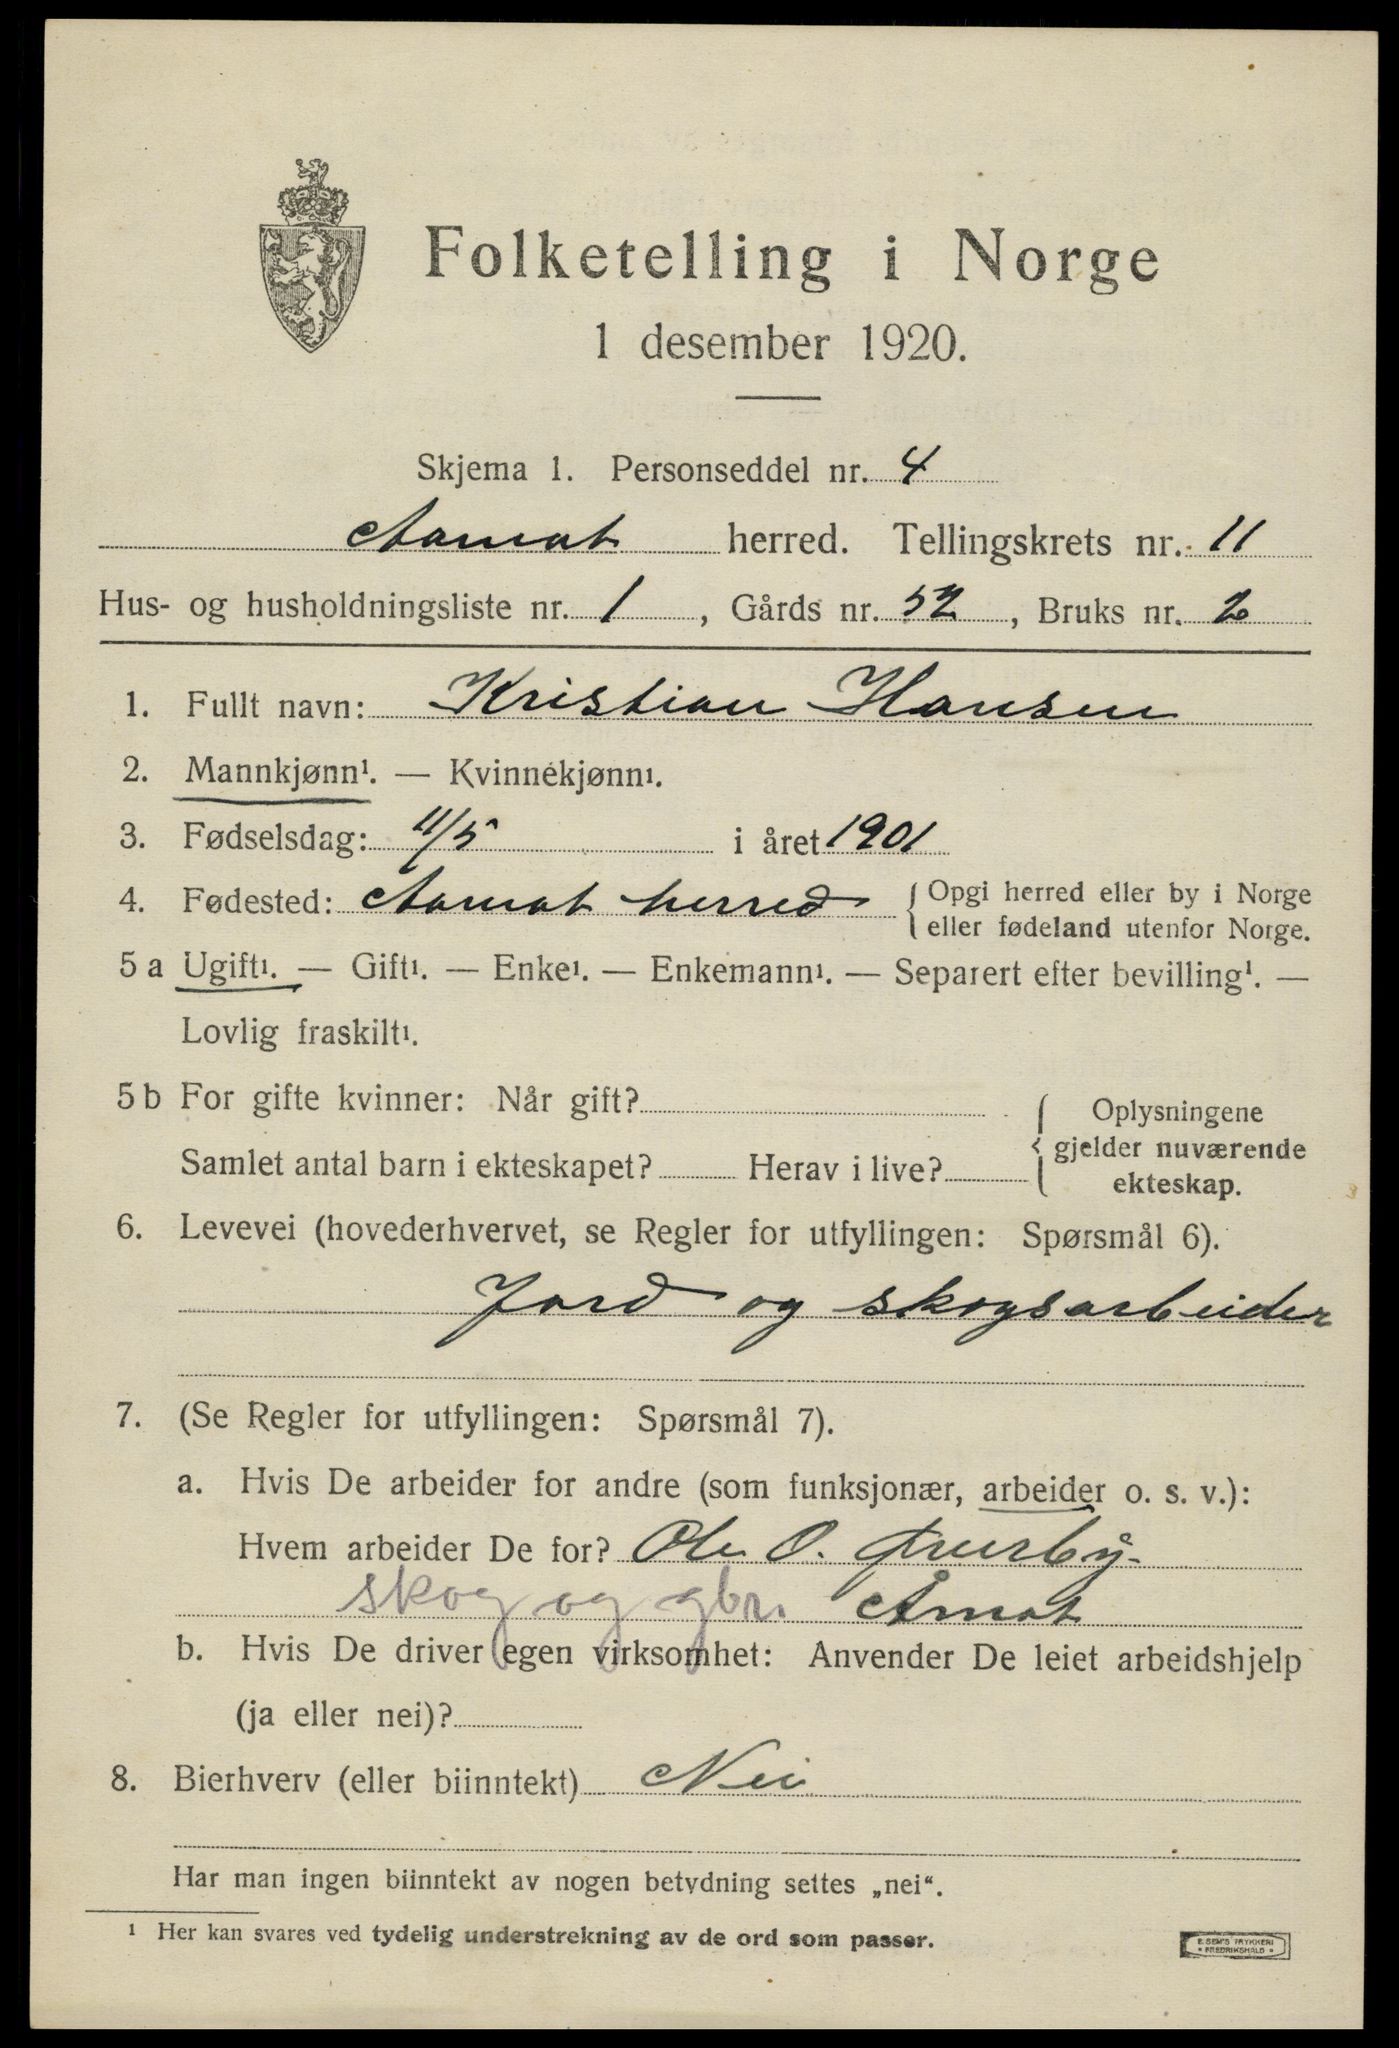 Folketelling i Norge
1 desember 1920.
Skjema 1. Personseddel nr. 4
Aamot herred. Tellingskrets nr. 11
Hus- og husholdningsliste nr. 1, Gårds nr. 52, Bruks nr. 2
1. Fullt navn: Kristian Hansen
2. Mannkjønn¹. — Kvinnekjønn¹.
3. Fødselsdag: 11/5 i året 1901
4. Fødested: Aamot herred { Opgi herred eller by i Norge
eller fødeland utenfor Norge.
5 a Ugift¹. — Gift¹. — Enke¹. — Enkemann¹. — Separert efter bevilling¹. —
Lovlig fraskilt¹.
5 b For gifte kvinner: Når gift?
Samlet antal barn i ekteskapet? Herav i live?
{ Oplysningene
gjelder nuværende
ekteskap.
6. Levevei (hovederhvervet, se Regler for utfyllingen: Spørsmål 6).
Jord og skogsarbeider
7. (Se Regler for utfyllingen: Spørsmål 7).
a. Hvis De arbeider for andre (som funksjonær, arbeider o. s. v.):
Hvem arbeider De for? Ole O.
skog og gbr. Åmot
b. Hvis De driver egen virksomhet: Anvender De leiet arbeidshjelp
(ja eller nei)?
8. Bierhverv (eller biinntekt) Nei
Har man ingen biinntekt av nogen betydning settes „nei“.
¹ Her kan svares ved tydelig understrekning av de ord som passer.
E. SEM'S TRYKKERI
• FREDRIKSHALD •